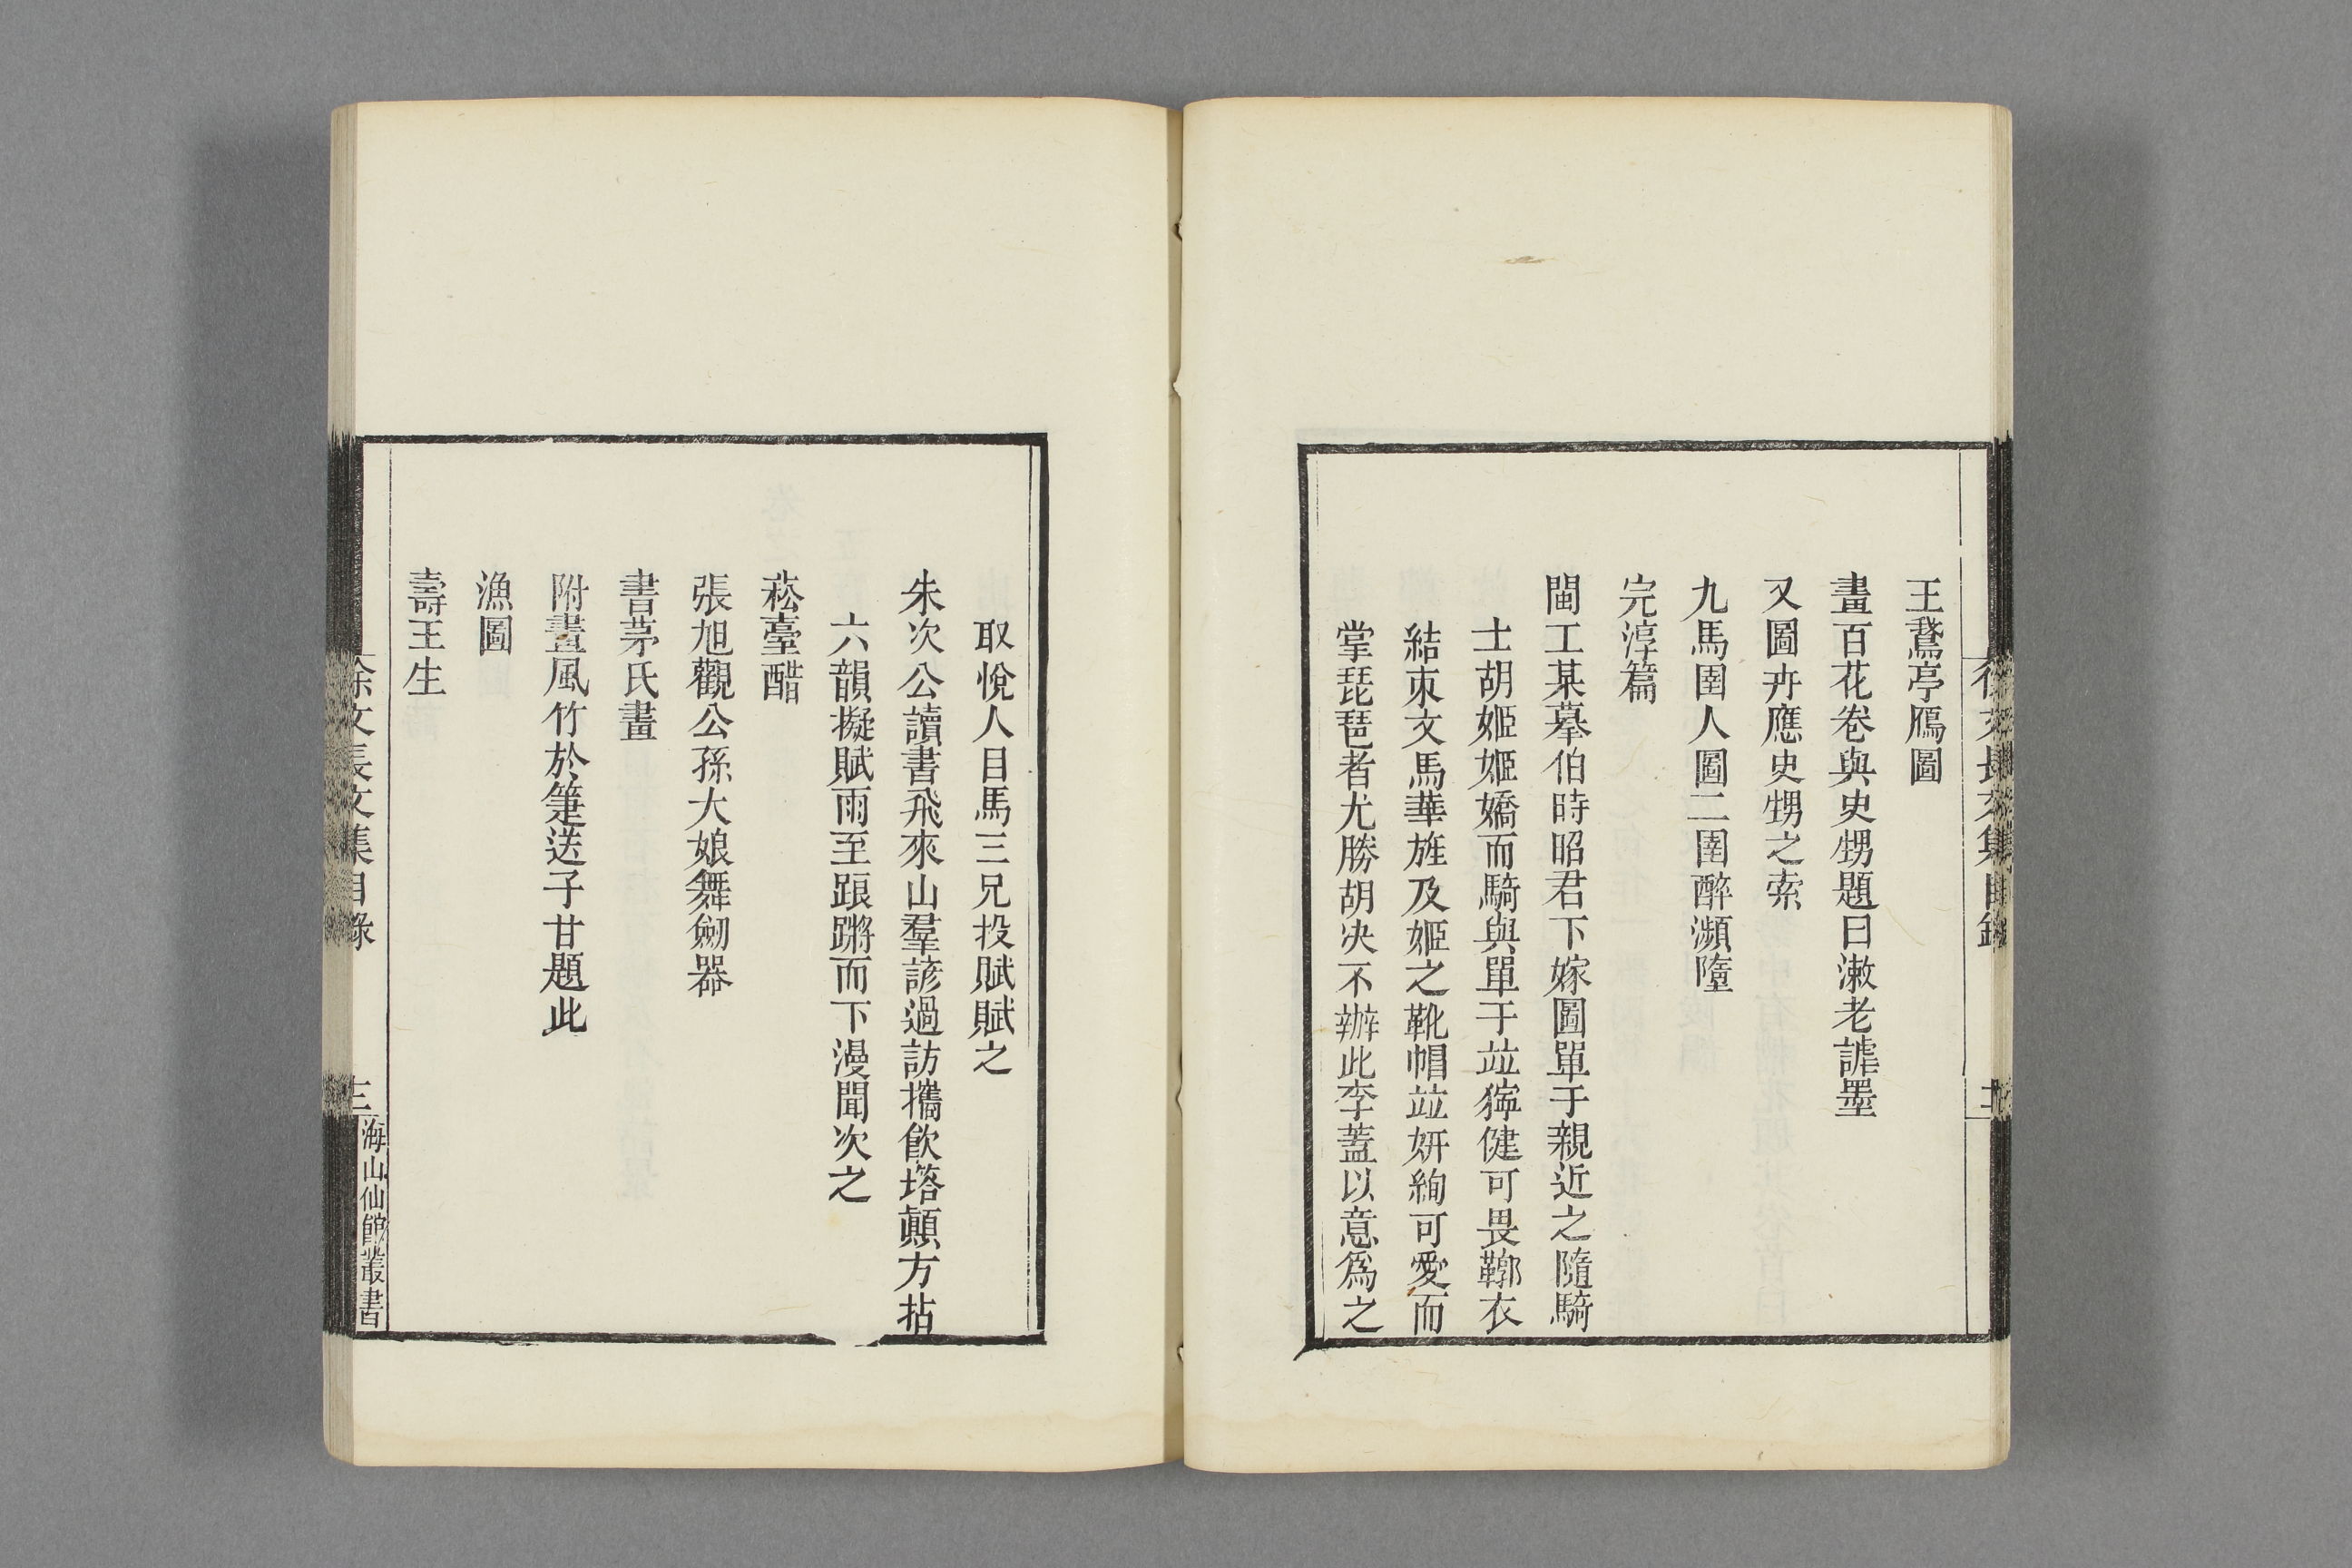 王鵞亭鴈圖
畫百花卷與史甥題曰漱老謔墨
又圖卉應史甥之索
九馬圉人圖二圉醉瀕墮
完淳篇
閩工某摹伯時昭君下嫁圖單于親近之隨騎
士胡姬姬嬌而騎與單于竝獰健可畏鞹衣
結束文馬華旌及姬之靴帽竝妍絢可愛而
掌琵琶者尤勝胡决不辦此李蓋以意爲之
取悅人目馬三兄投賦賦之
朱次公讀書飛來山羣諺過訪攜飮塔顛方拈
六韻擬賦雨至踉蹡而下漫聞次之
菘臺醋
張旭觀公孫大娘舞劒器
書茅氏畫
附畫風竹於箑送子甘題此
漁圖
壽王生
徐文長文集目錄
三
海山仙館叢書